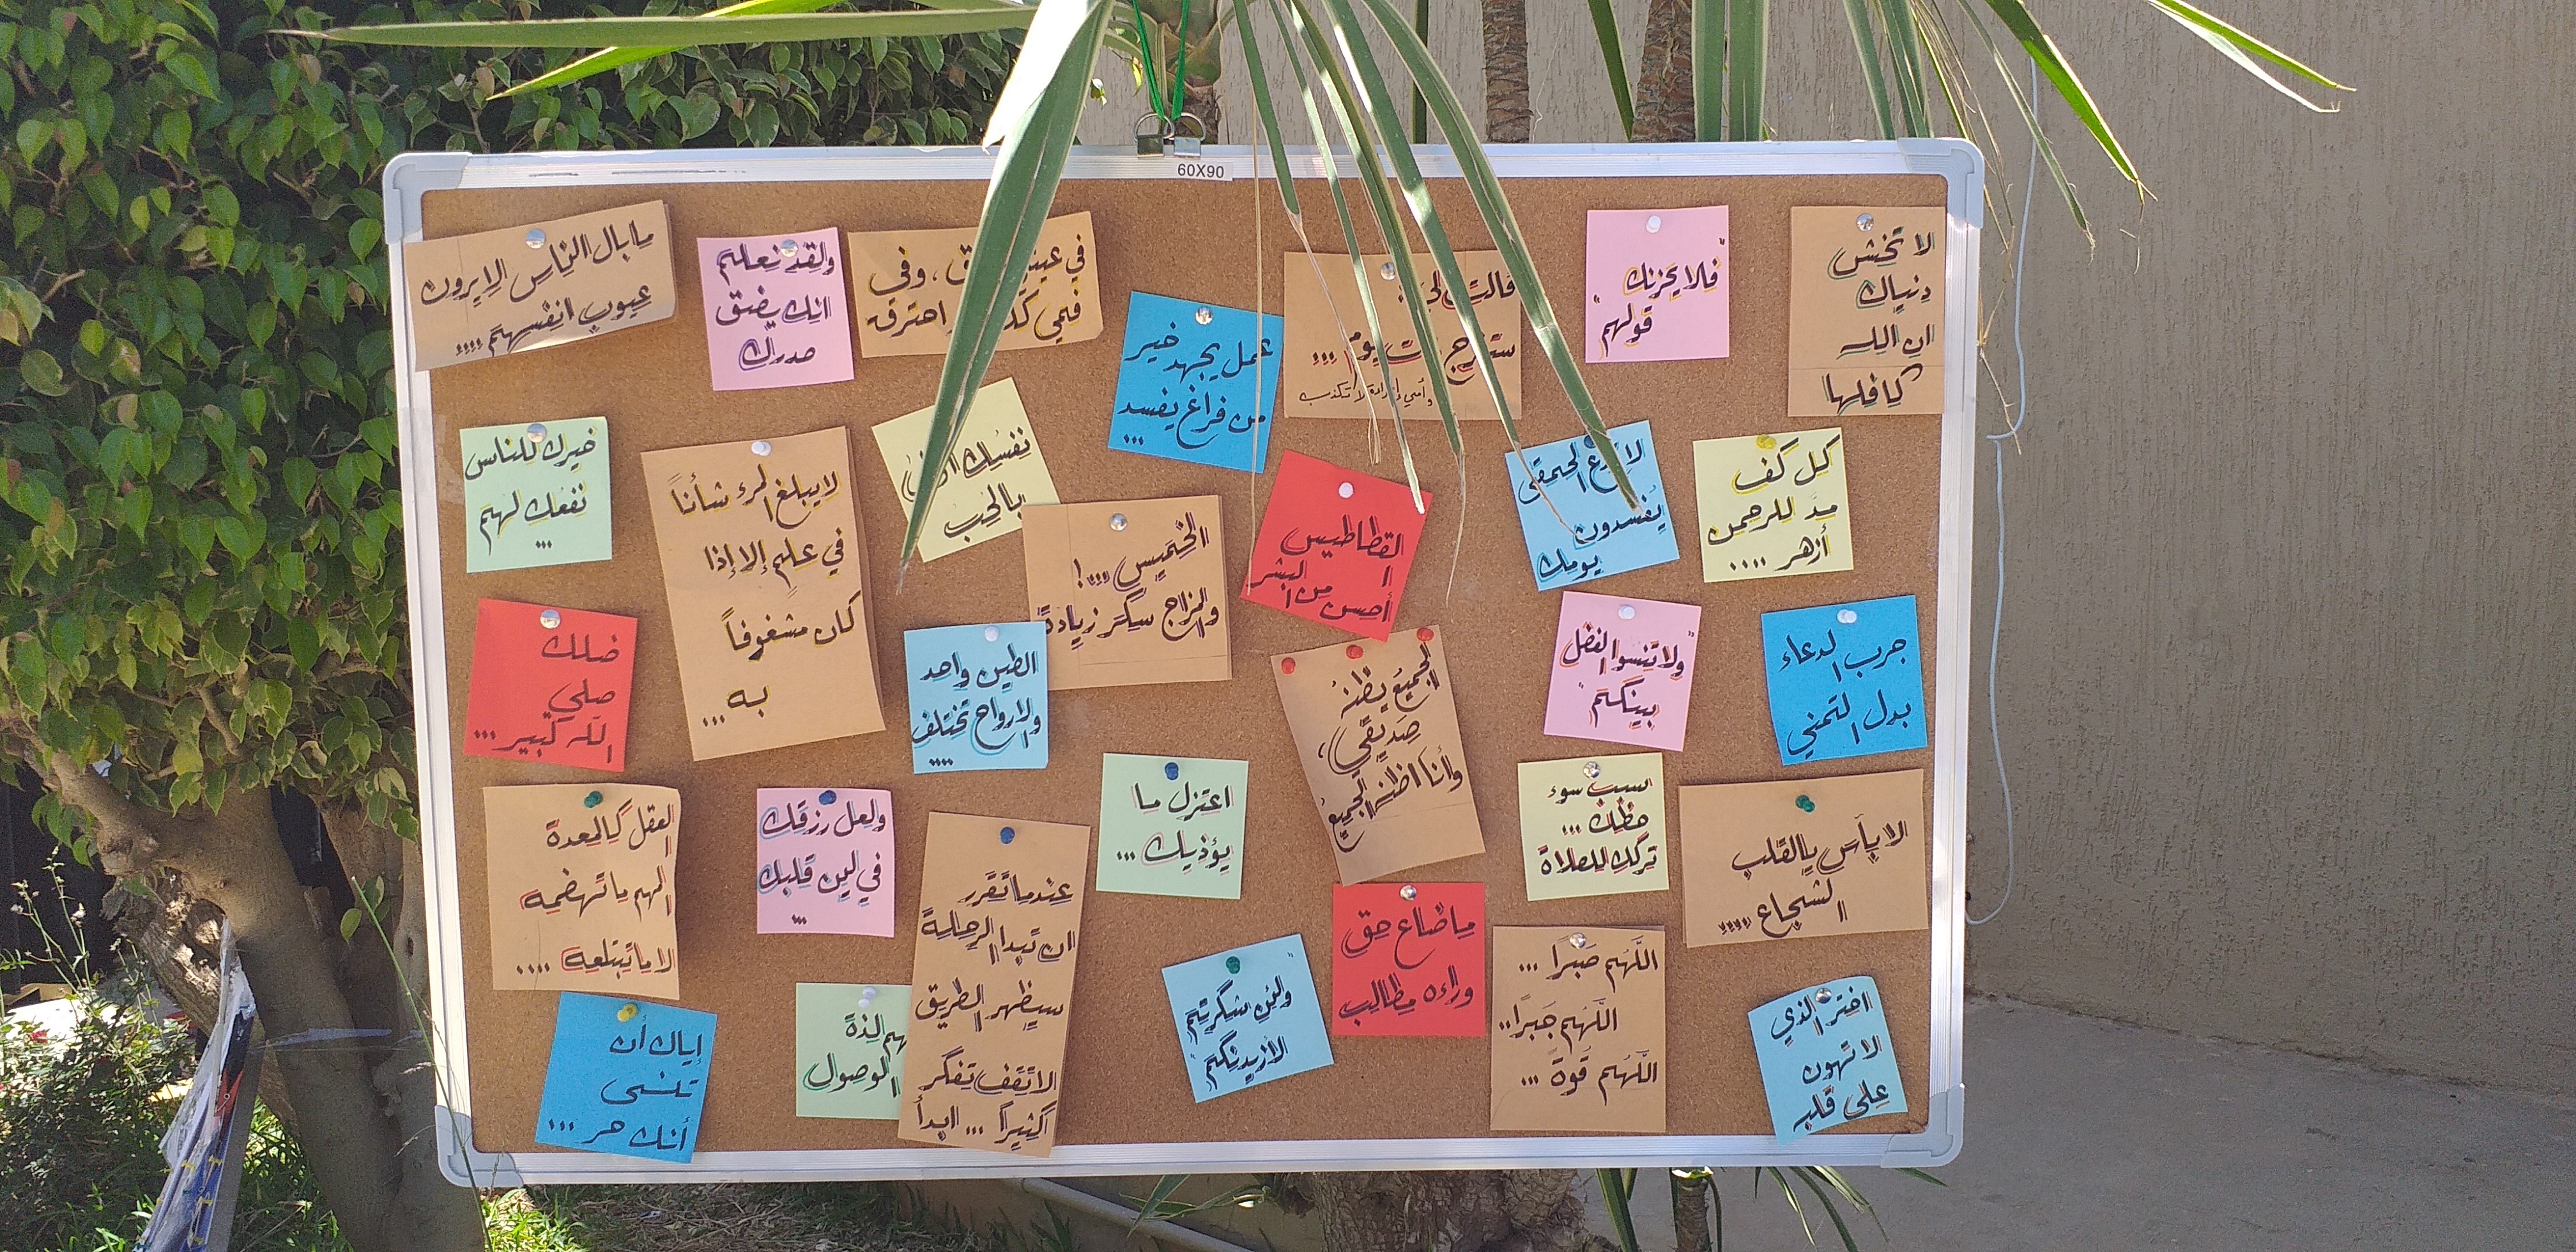 60X90
لا تخش
دنياك
ان الله
كافلها
"فلا يحزنك
قولهم"
قالت لي
ستفرح يوم ...
وأمي لا تكذب
عمل يجهد خير
من فراغ يفسد
...
في ، وفي
فمي احترق
ولقد نعلم
انك يضيق
صدرك
ما بال الناس لا يرون
عيوب انفسهم ....
كل كف
مد للرحمن
أزهر ....
لا تدع الحمقى
يفسدون
يومك
القطاطيس
أحسن من البشر
نفسك
بالحب
الخميس ....!
والمزاج سكر زيادة
لا يبلغ المرء شأناً
في علم إلا إذا
كان مشغوفاً
به ...
خيرك للناس
نفعك لهم
...
جرب الدعاء
بدل التمني
"ولا تنسوا الفضل
بينكم"
الجميع يظنه
صديقي،
وأنا اظنه الجميع
الطين واحد
والارواح تختلف
....
ضلك
صلي
الله كبير ...
لا يأس يا القلب
الشجاع .....
لسبب سوء
حظك ...
تركك للصلاة
اعتزل ما
يؤذيك ...
ولعل رزقك
في لين قلبك
...
العقل كالمعدة
المهم ما تهضمه
لا ما تبتلعه ....
ما ضاع حق
وراءه مطالب
عندما تقرر
ان تبدا الرحلة
سيظهر الطريق
لا تقف تفكر
كثيرا ... ابدأ
اللهم صبرا ...
اللهم جبرا..
اللهم قوة ...
"ولئن شكرتم
لازيدنكم"
اختر الذي
لا تهون
على قلبه
لذة
الوصول
إياك أن
تنسى
أنك حر ...